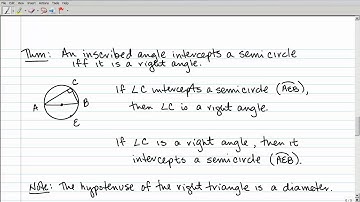 Thm: An inscribed angle intercepts a semicircle
iff it is a right angle.
C
A
B
E
If ∠C intercepts a semicircle (AEB),
then ∠C is a right angle.
If ∠C is a right angle, then it
intercepts a semicircle (AEB).
Note: The hypotenuse of the right triangle is a diameter.